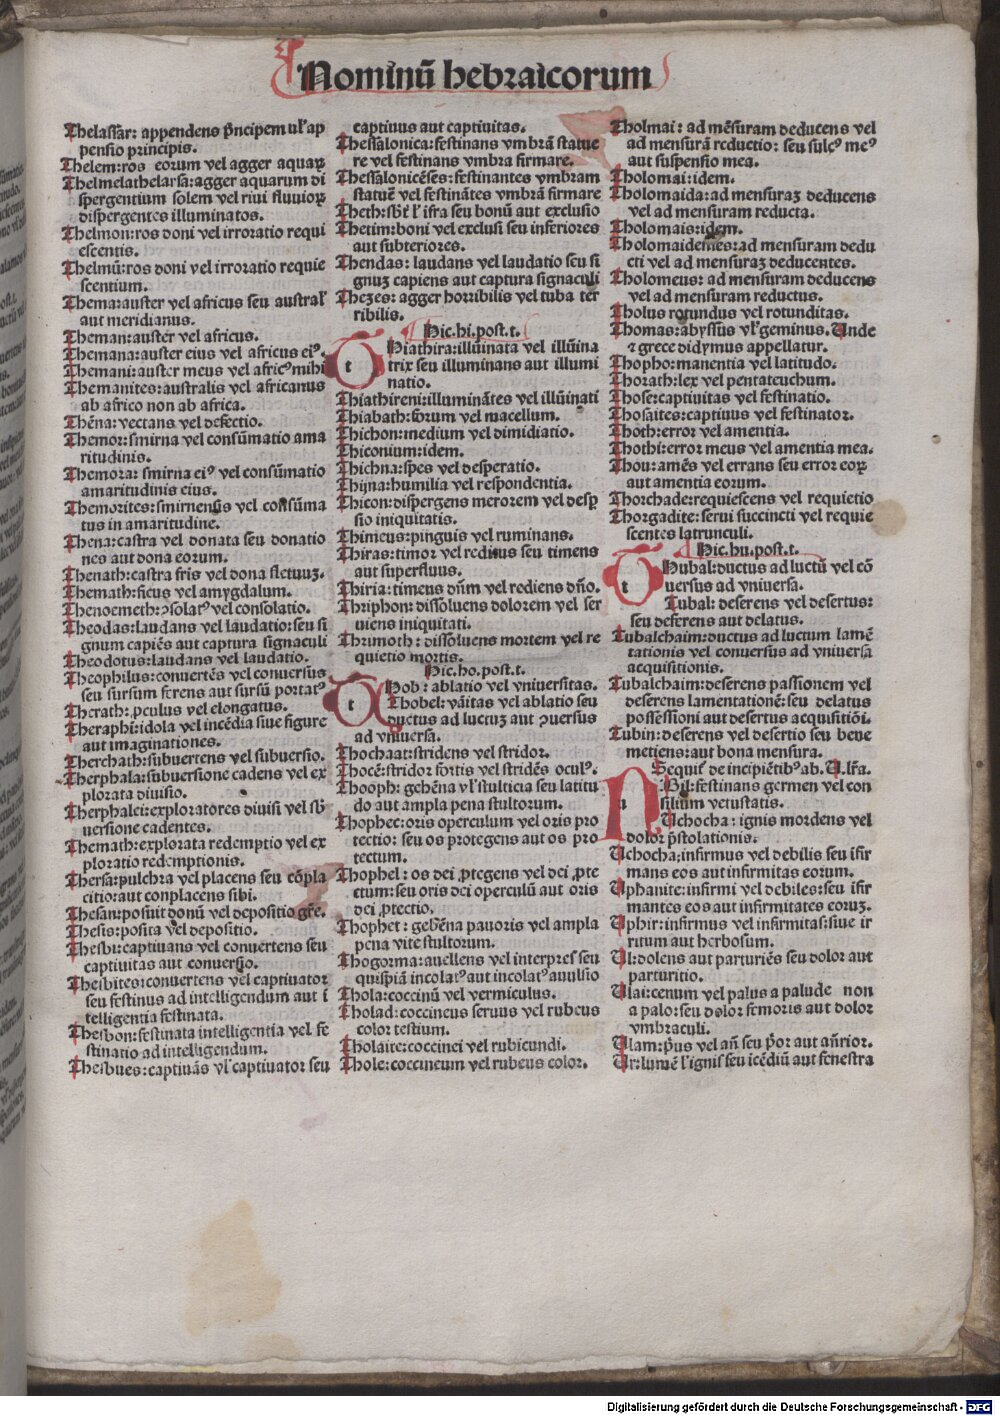 Nominū hebraicorum
Thelassar: appendens p̄ncipem vl' ap
pensio principis.
Thelem: ros eorum vel agger aquaꝝ
Thelmelathelarsa: agger aquarum di
spergentium solem vel riui fluuioꝝ
dispergentes illuminatos.
Thelmon: ros doni vel irroratio requi
escentis.
Thelmū: ros doni vel irroratio requie
scentium.
Thema: auster vel africus seu austral'
aut meridianus.
Theman: auster vel africus.
Themana: auster eius vel africus eiꝰ.
Themani: auster meus vel africꝰ mihi
Themanites: australis vel africanus
ab africo non ab africa.
Thēna: vectans vel defectio.
Themor: smirna vel consūmatio ama
ritudinis.
Themora: smirna eiꝰ vel consūmatio
amaritudinis eius.
Themorites: smirnensis vel consūma
tus in amaritudine.
Thena: castra vel donata seu donatio
nes aut dona eorum.
Thenath: castra fris vel dona fletuuꝫ.
Themath: ficus vel amygdalum.
Thenoemeth: ꝯsolatꝰ vel consolatio.
Theodas: laudans vel laudatio: seu si
gnum capiēs aut captura signaculi
Theodotus: laudans vel laudatio.
Theophilus: conuertēs vel conuersus
seu sursum ferens aut sursū portatꝰ
Therath: ꝓculus vel elongatus.
Theraphi: idola vel incēdia siue figure
aut imaginationes.
Therchath: subuertens vel subuersio.
Therphala: subuersione cadens vel ex
plorata diuisio.
Therphalei: exploratores diuisi vel sb̄
uersione cadentes.
Themath: explorata redemptio vel ex
ploratio redemptionis.
Thersa: pulchra vel placens seu cōpla
citio: aut conplacens sibi.
Thesan: posuit donū vel depositio gr̄e.
Thesis: posita vel depositio.
Thesbi: captiuans vel conuertens seu
captiuitas aut conuersio.
Thesbites: conuertens vel captiuator
seu festinus ad intelligendum aut ī
telligentia festinata.
Thesbon: festinata intelligentia vel fe
stinatio ad intelligendum.
Thesbues: captiuās vl' captiuator seu
captiuus aut captiuitas.
Thessalonica: festinans vmbrā statue
re vel festinans vmbra firmare.
Thessalonicēses: festinantes vmbram
statuē vel festinātes vmbrā firmare
Theth: sb̄t' l' ifra seu bonū aut exclusio
Thetim: boni vel exclusi seu inferiores
aut subteriores.
Thendas: laudans vel laudatio seu si
gnuꝫ capiens aut captura signaculi
Thezes: agger horribilis vel tuba ter
ribilis.
Hic.hi.post.t.
t
Hiathira: illuīnata vel illuīna
trix seu illuminans aut illumi
natio.
Thiathireni: illuminātes vel illuīnati
Thiabath: forum vel macellum.
Thichon: medium vel dimidiatio.
Thiconium: idem.
Thichna: spes vel desperatio.
Thijna: humilia vel respondentia.
Thicon: dispergens merorem vel desp̱
sio iniquitatis.
Thinicus: pinguis vel ruminans.
Thiras: timor vel rediens seu timens
aut superfluus.
Thiria: timens dn̄m vel rediens dn̄o.
Thriphon: dissoluens dolorem vel ser
uiens iniquitati.
Thrimoth: dissoluens mortem vel re
quietio mortis.
Hic.ho.post.t.
t
Hob: ablatio vel vniuersitas.
Thobel: vāitas vel ablatio seu
ductus ad luctuꝫ aut ꝯuersus
ad vniuersa.
Thochaat: stridens vel stridor.
Thocē: stridor fortis vel stridēs oculꝰ.
Thooph: gehēna vl' stulticia seu latitu
do aut ampla pena stultorum.
Thophec: oris operculum vel oris pro
tectio: seu os protegens aut os pro
tectum.
Thophel: os dei ꝓtegens vel dei ꝓte
ctum: seu oris dei operculū aut oris
dei ꝓtectio.
Thophet: gehēna pauoris vel ampla
pena vite stultorum.
Thogorma: auellens vel interpres seu
quispiā incolatꝰ aut incolatꝰ auulsio
Thola: coccinū vel vermiculus.
Tholad: coccineus seruus vel rubeus
color testium.
Tholaite: coccinei vel rubicundi.
Thole: coccineum vel rubeus color.
Tholmai: ad mēsuram deducens vel
ad mensurā reductio: seu sulcꝰ meꝰ
aut suspensio mea.
Tholomai: idem.
Tholomaida: ad mensuraꝫ deducens
vel ad mensuram reducta.
Tholomais: idem.
Tholomaidenses: ad mensuram dedu
cti vel ad mensuraꝫ deducentes.
Tholomeus: ad mensuram deducens
vel ad mensuram reductus.
Tholus rotundus vel rotunditas.
Thomas: abyssus vl' geminus. Unde
⁊ grece didymus appellatur.
Thopho: manentia vel latitudo.
Thorath: lex vel pentateuchum.
Those: captiuitas vel festinatio.
Thosaites: captiuus vel festinator.
Thoth: error vel amentia.
Thothi: error meus vel amentia mea.
Thou: amēs vel errans seu error eoꝝ
aut amentia eorum.
Thorchade: requiescens vel requietio
Thorgadite: serui succincti vel requie
scentes latrunculi.
Hic.hu.post.t.
t
Hubal: ductus ad luctū vel cō
uersus ad vniuersa.
Tubal: deferens vel desertus:
seu deferens aut delatus.
Tubalchaim: ductus ad luctum lamē
tationis vel conuersus ad vniuersa
acquisitionis.
Tubalchaim: deserens passionem vel
deferens lamentationē: seu delatus
possessioni aut desertus acquisitiōi.
Tubin: deserens vel desertio seu bene
metiens: aut bona mensura.
Sequit̄ de incipiētibꝰ ab. U. l'r̄a.
u
Bil: festinans germen vel con
silium vetustatis.
Uchocha: ignis mordens vel
dolor p̄stolationis.
Uchocha: infirmus vel debilis seu īfir
mans eos aut infirmitas eorum.
Uphanite: infirmi vel debiles: seu īfir
mantes eos aut infirmitates eoruꝫ.
Uphir: infirmus vel infirmitas: siue ir
ritum aut herbosum.
Ul: dolens aut parturiēs seu dolor aut
parturitio.
Ulai: cenum vel palus a palude non
a palo: seu dolor femoris aut dolor
vmbraculi.
Ulam: p̄us vel an̄ seu p̄or aut an̄rior.
Ur: lumē l' ignis seu icēdiū aut fenestra
Digitalisierung gefördert durch die Deutsche Forschungsgemeinschaft - DFG